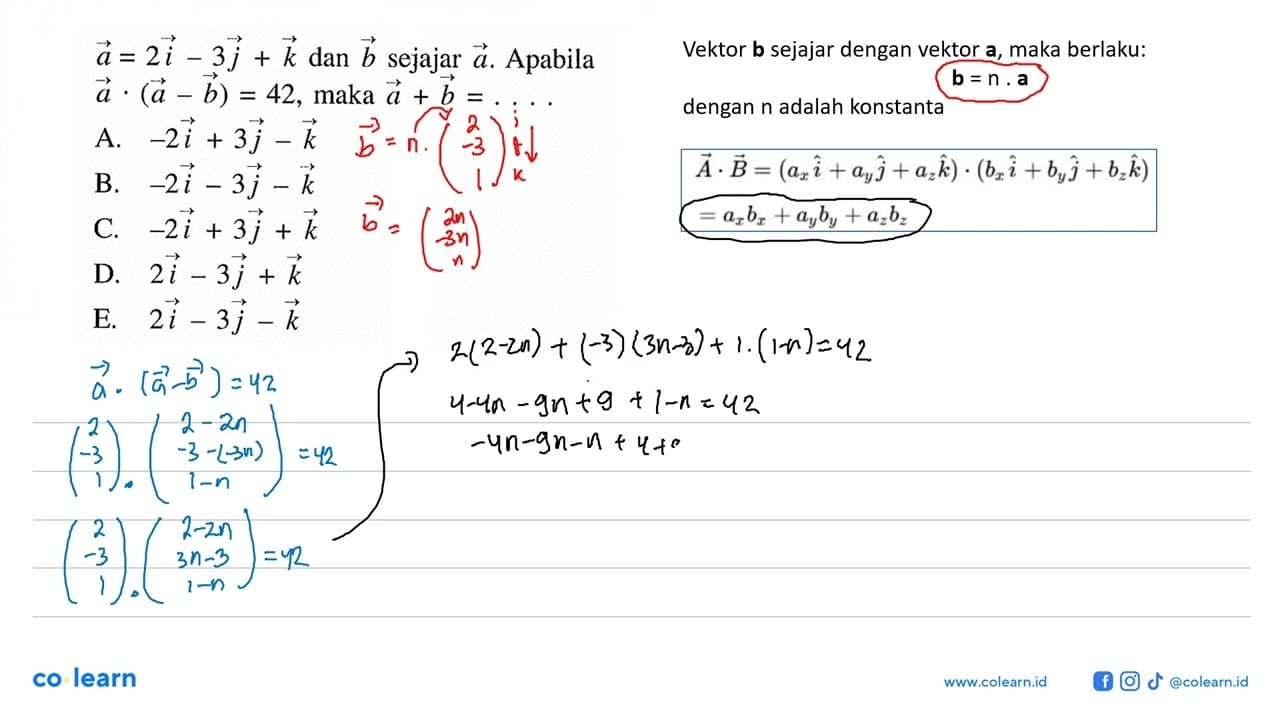 a⃗ = 2i⃗ – 3j⃗ + k⃗ dan b⃗ sejajar a⃗. Apabila
a⃗ · (a⃗ – b⃗) = 42, maka a⃗ + b⃗ = . . . .
A. –2i⃗ + 3j⃗ – k⃗
B. –2i⃗ – 3j⃗ – k⃗
C. –2i⃗ + 3j⃗ + k⃗
D. 2i⃗ – 3j⃗ + k⃗
E. 2i⃗ – 3j⃗ – k⃗
b⃗ = n. (2 -3 1) i k
b⃗ = (2n -3n n)
Vektor b sejajar dengan vektor a, maka berlaku:
b = n . a
dengan n adalah konstanta
A⃗ · B⃗ = (aₓî + a_yĵ + a_zk̂) · (bₓî + b_yĵ + b_zk̂)
= aₓbₓ + a_yb_y + a_zb_z
a⃗ . (a⃗-b⃗) = 42
(2 -3 1) . (2-2n -3-(-3n) 1-n) = 42
(2 -3 1) . (2-2n 3n-3 1-n) = 42
2(2-2n) + (-3)(3n-3) + 1.(1-n) = 42
4-4n -9n + 9 + 1-n = 42
-4n-9n-n + 4+
co learn
www.colearn.id
@colearn.id